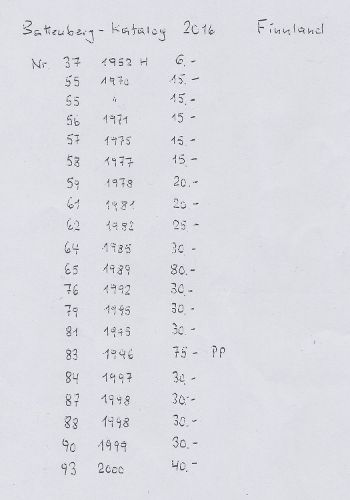 Battenberg - Katalog 2016 Finnland
Nr. 37 1952 H 6.-
55 1970 15.-
55 " 15.-
56 1971 15.-
57 1975 15.-
58 1977 15.-
59 1978 20.-
61 1981 20.-
62 1982 25.-
64 1985 30.-
65 1989 80.-
76 1992 30.-
79 1995 30.-
81 1995 30.-
83 1996 75.- PP
84 1997 30.-
87 1998 30.-
88 1998 30.-
90 1999 30.-
93 2000 40.-